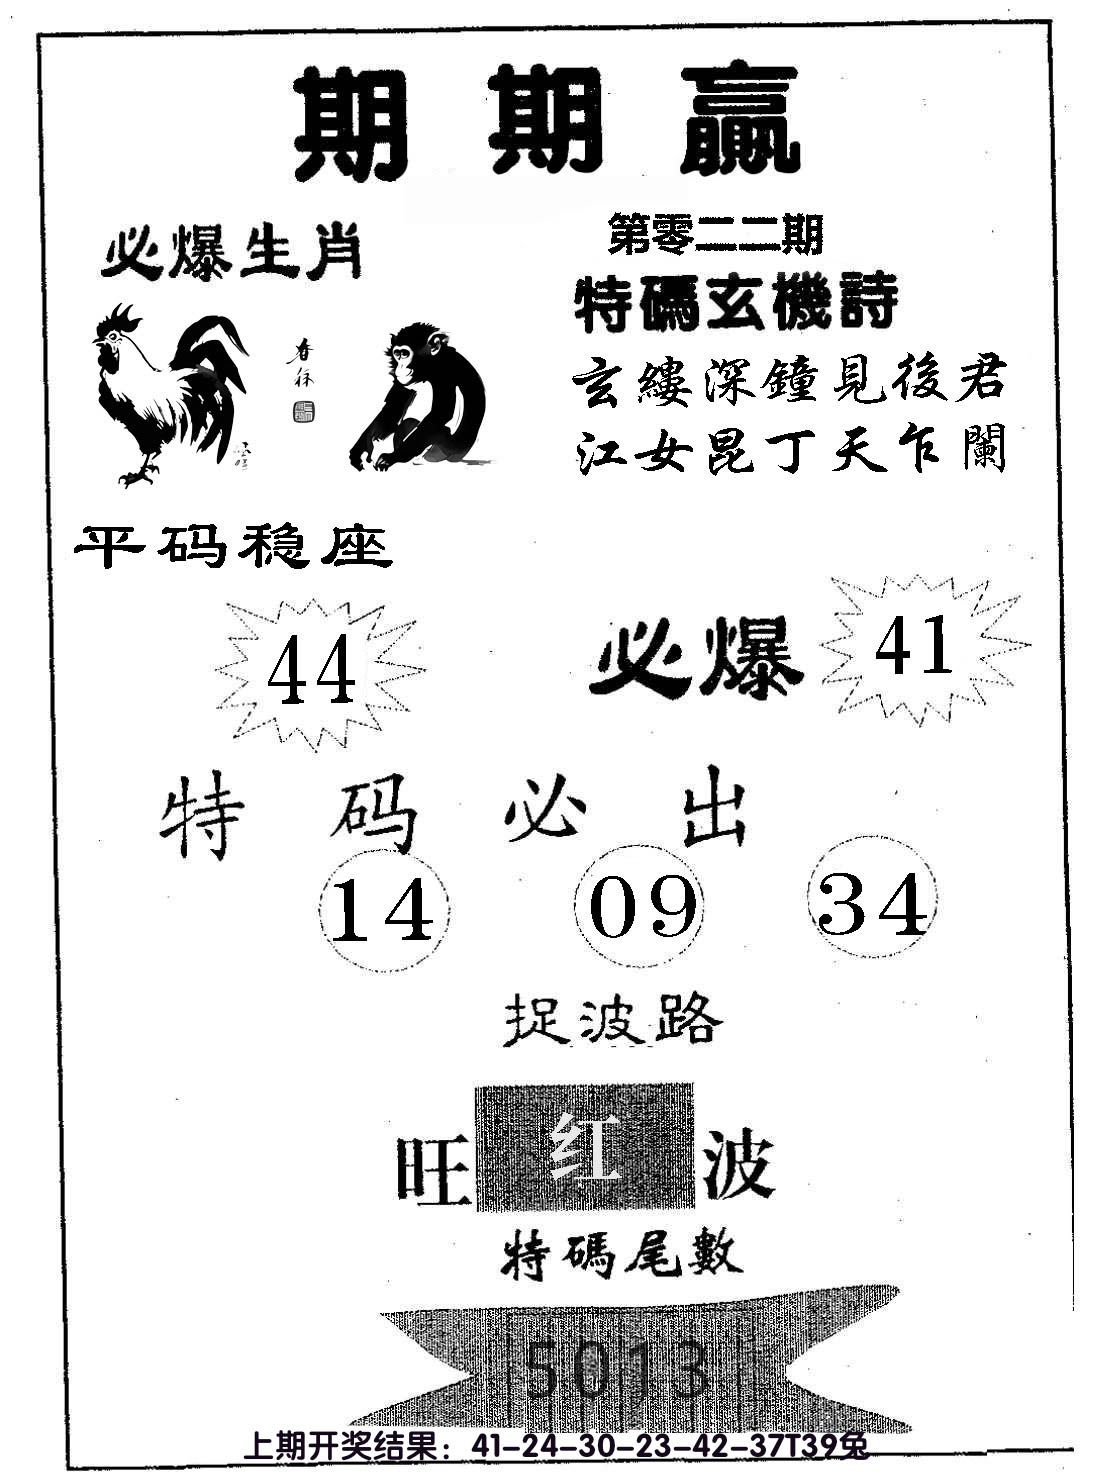 期期赢
必爆生肖
第零二二期
特碼玄機詩
玄縷深鐘見後君
江女昆丁天乍闌
平码稳座
44
必爆
41
特码必出
14 09 34
捉波路
旺红波
特碼尾數
5013
上期开奖结果：41-24-30-23-42-37T39兔